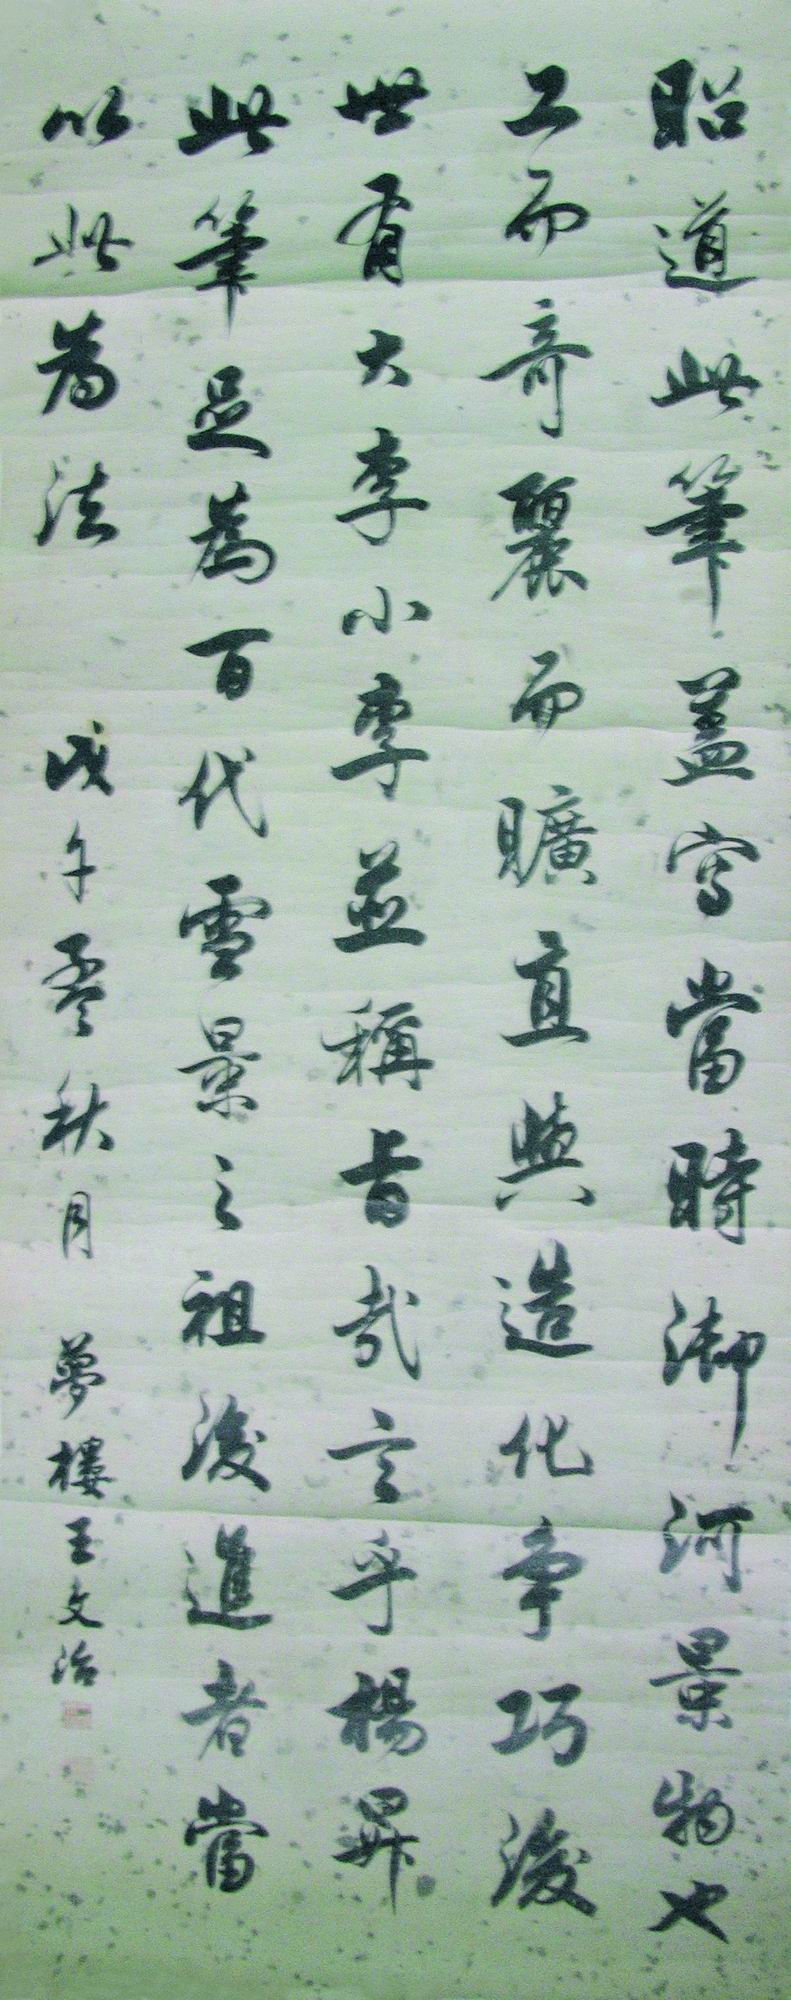 昭道此筆蓋寫當時御河景物也
工而奇麗而曠直與造化争巧後
世有大李小李並稱旨哉言乎楊昇
此筆足為百代雪景之祖後進者當
以此為法
戊午季秋月 夢樓王文治